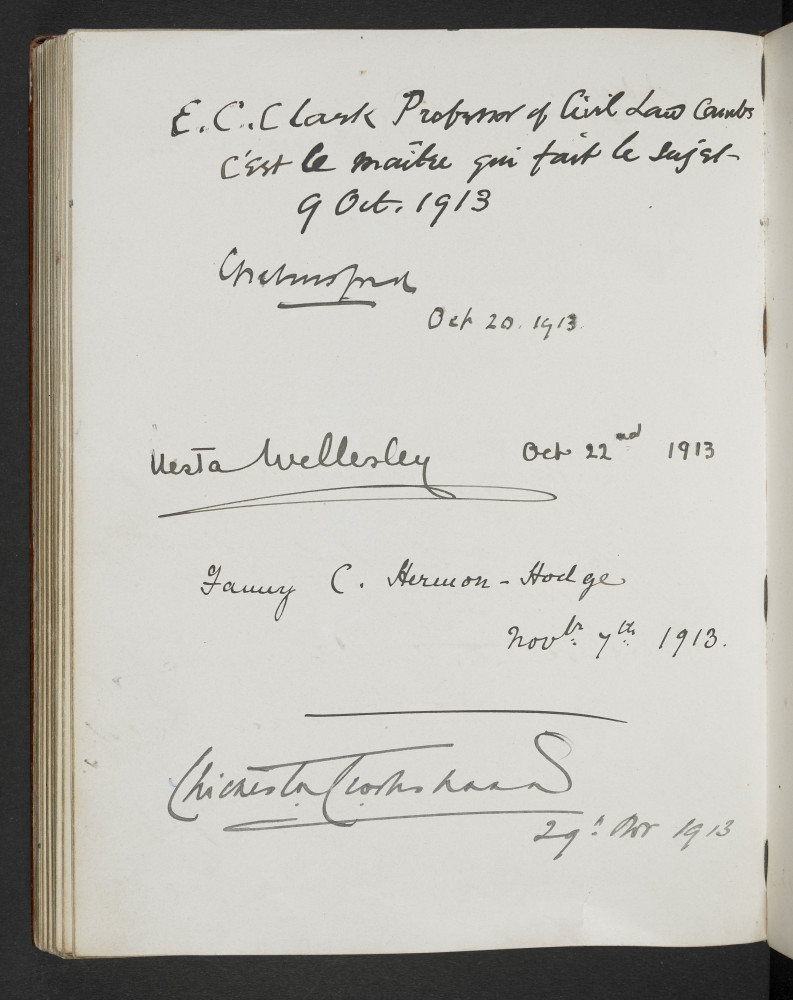 E. C. Clark Professor of Civil Law Cambs
C'est le maître qui fait le sujet
9 Oct. 1913
Chelmsford
Oct 20. 1913.
Nesta Wellesley Oct 22nd 1913
Fanny C. Hermon-Hodge
Novbr. 7th 1913.
Chichester
29. Nov 1913